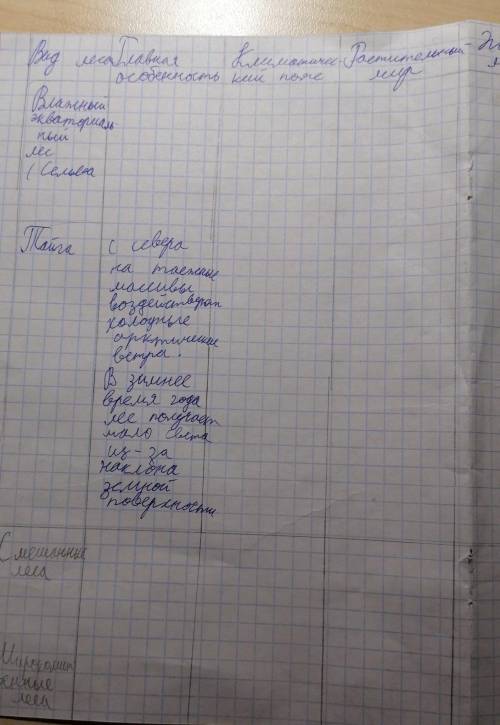 Вид леса Главная Климатичес- Растительный
особенность кий пояс мир
Влажный
экваториаль
ный
лес
(Сельва
Тайга с севера
на таежные
массивы
воздействуют
холодные
арктические
ветра.
В зимнее
время года
лес получает
мало света
из-за
наклона
земной
поверхности
Смешанные
леса
Широколист
венные
леса